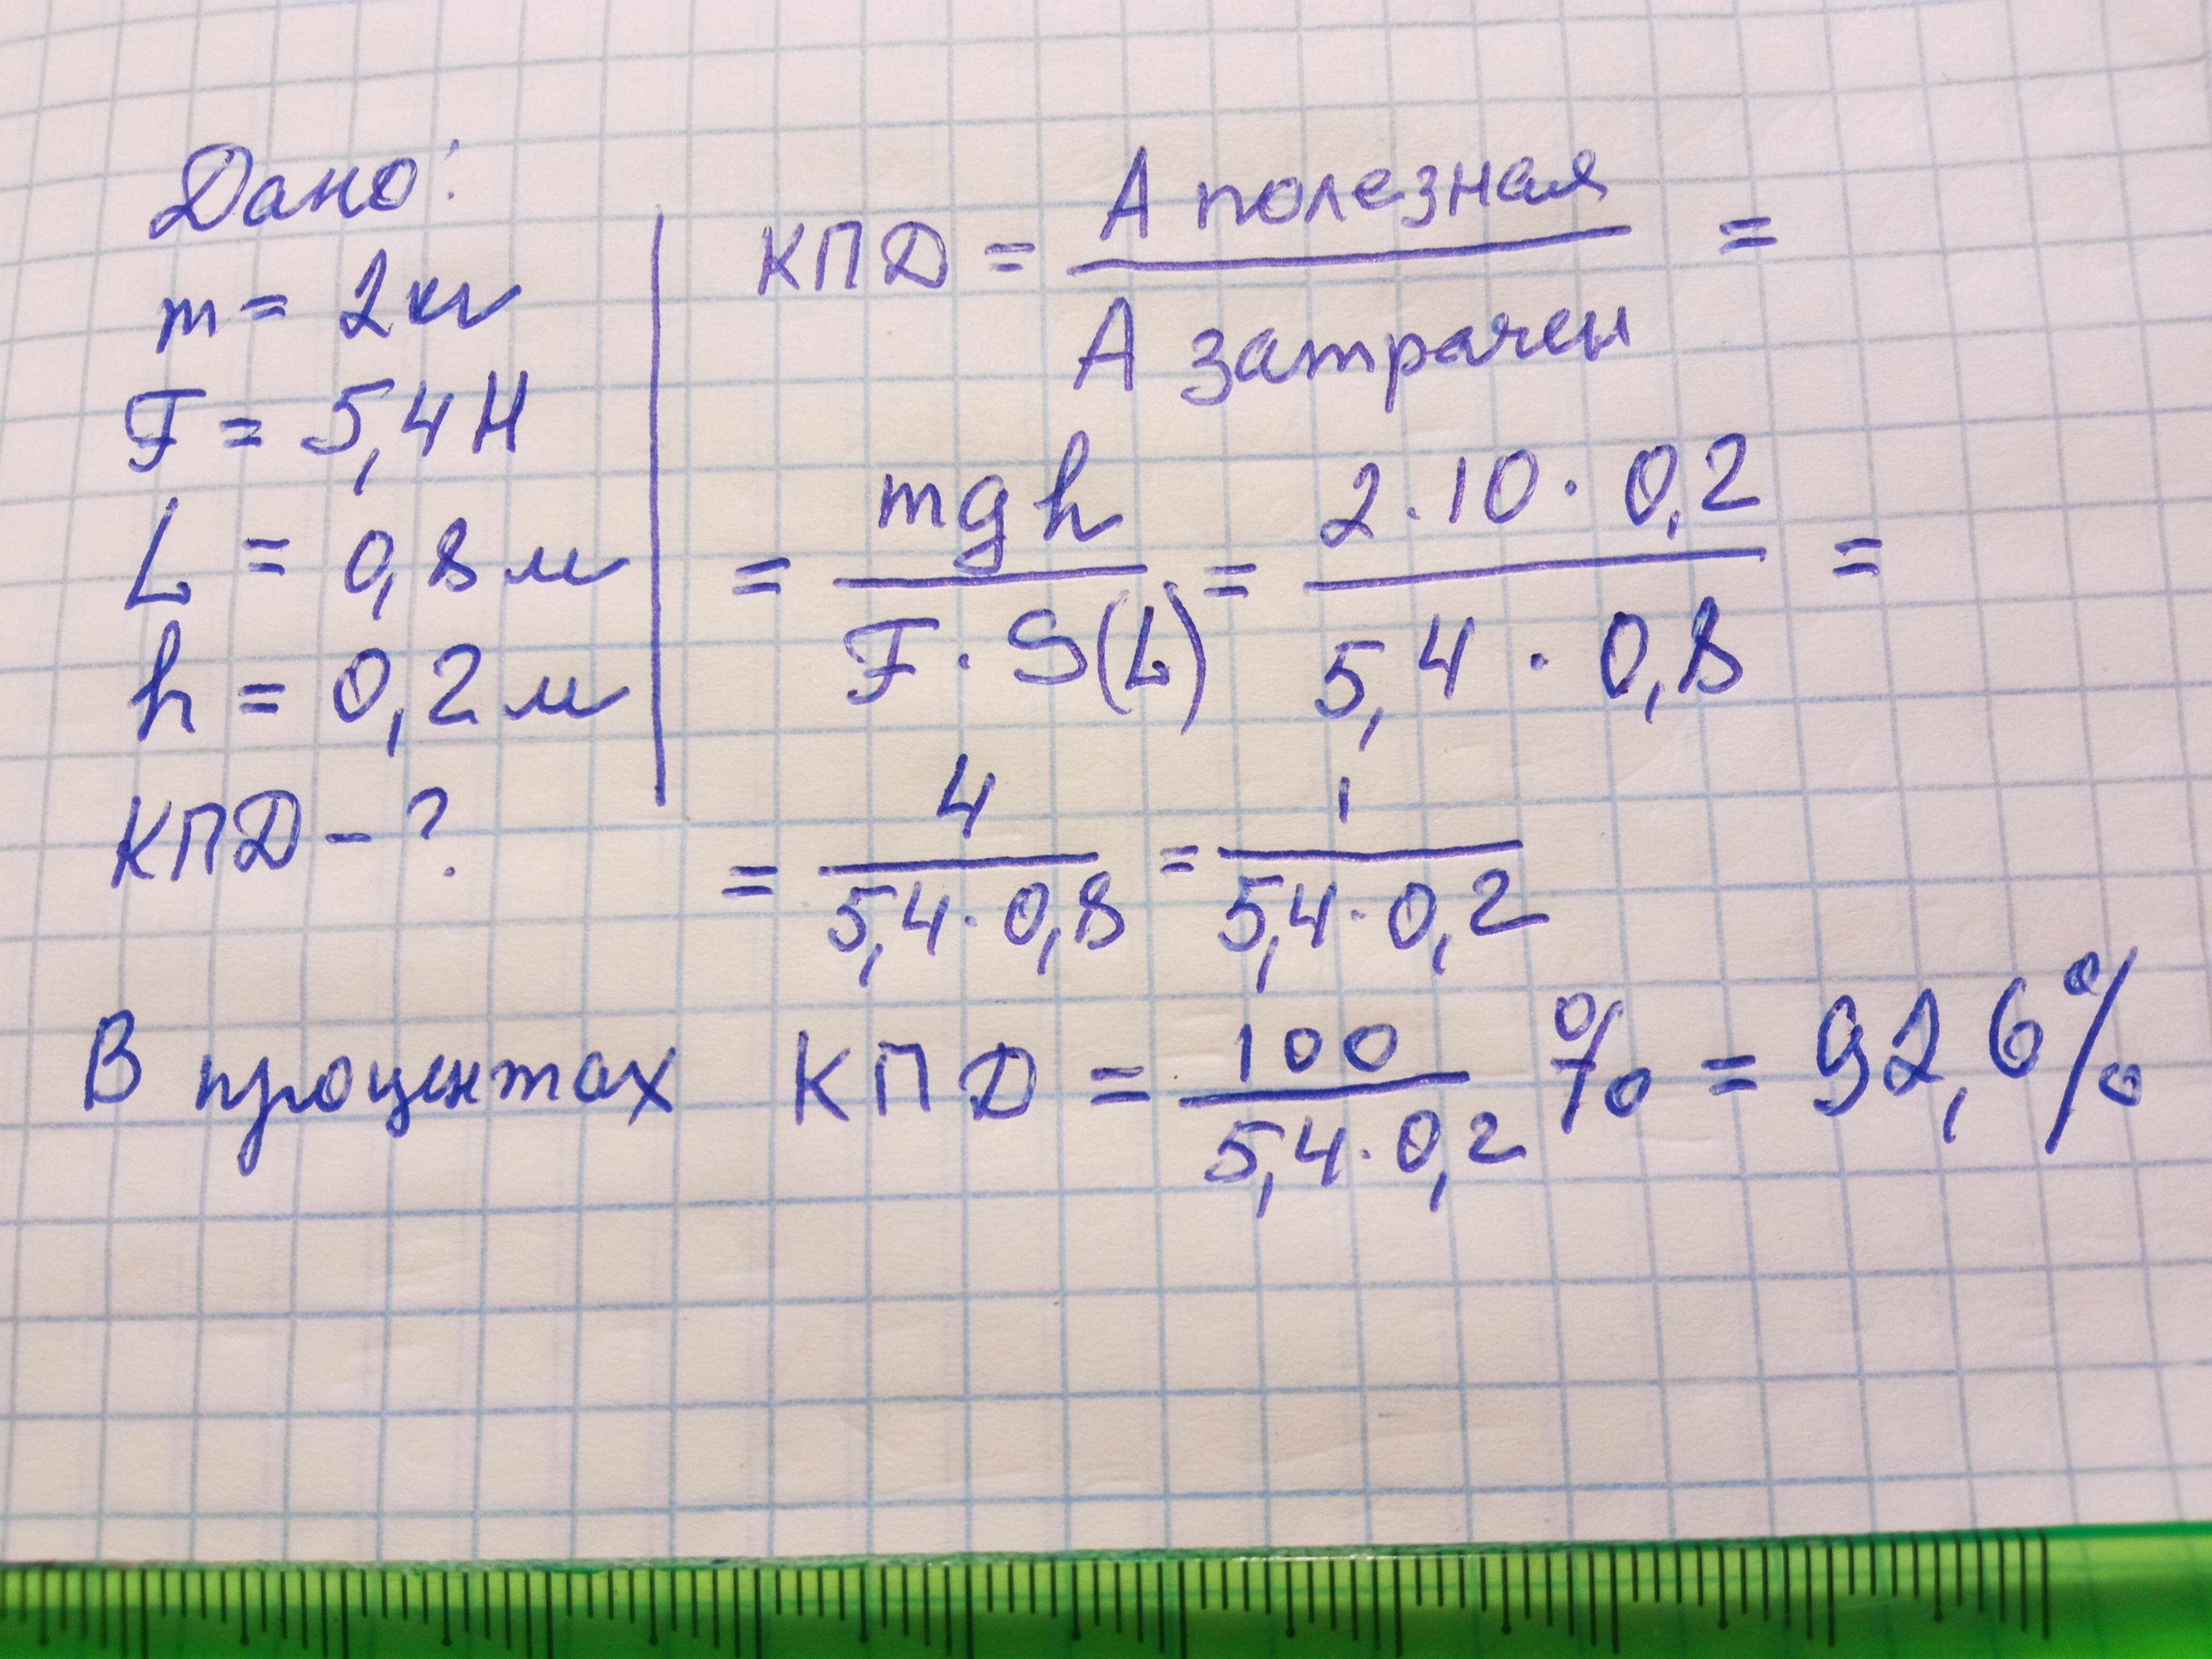 Дано:
m = 2кг
F = 5,4Н
L = 0,8м
h = 0,2м
КПД - ?
КПД = A полезная / A затрачен =
= mgh / F · S(L) = 2·10·0,2 / 5,4 · 0,8 =
= 4 / 5,4·0,8 = 1 / 5,4·0,2
В процентах КПД = 100 / 5,4·0,2 % = 92,6%